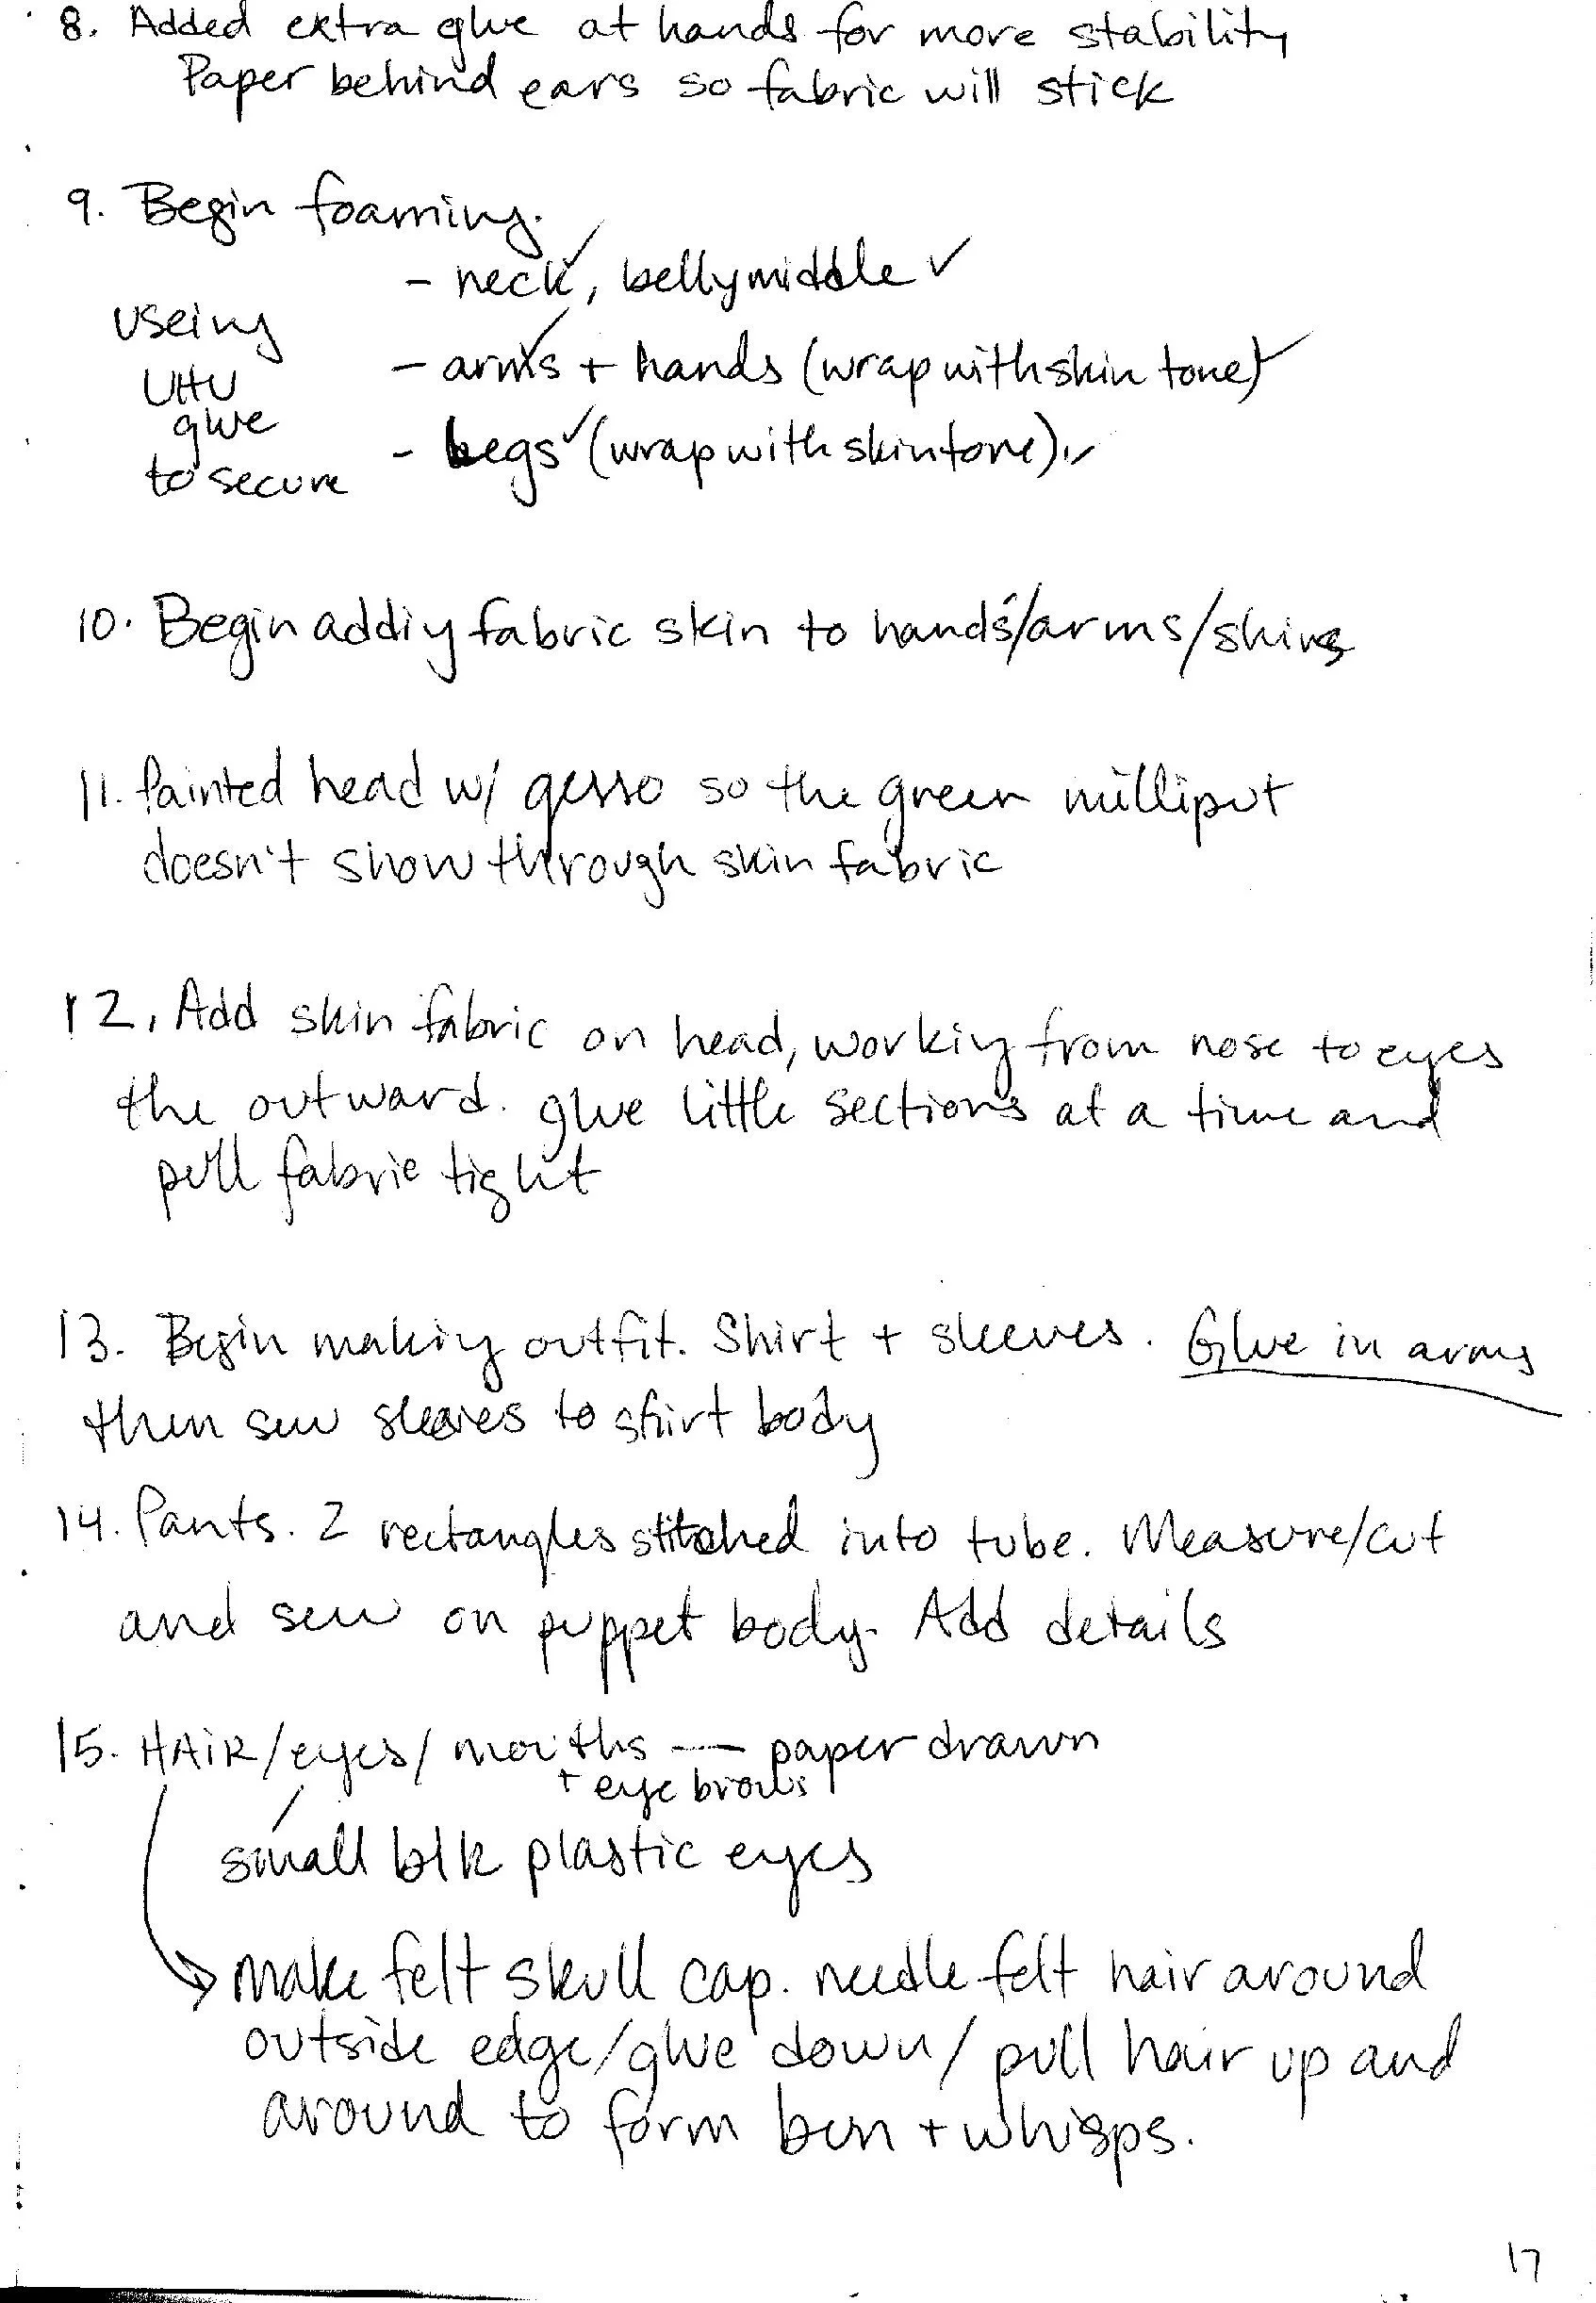 8. Added extra glue at hands for more stability
Paper behind ears so fabric will stick
9. Begin foaming.
- neck ✓, belly middle ✓
useing
UHU
glue
to secure
- arms ✓ + hands (wrap with skin tone) ✓
- legs ✓ (wrap with skin tone) ✓
10. Begin addiy fabric skin to hands/arms/shins
11. Painted head w/ gesso so the green milliput
doesn't show through skin fabric
12. Add skin fabric on head, workiy from nose to eyes
the outward. glue little sections at a time and
pull fabric tight
13. Begin makiy outfit. Shirt + sleeves. Glue in arms
then sew sleeves to shirt body
14. Pants. 2 rectangles stitched into tube. Measure/cut
and sew on puppet body. Add details
15. HAiR/eyes/mouths — paper drawn
+ eye brows
small blk plastic eyes
→ Make felt skull cap. needle felt hair around
outside edge/glue down/ pull hair up and
around to form bun + whisps.
17